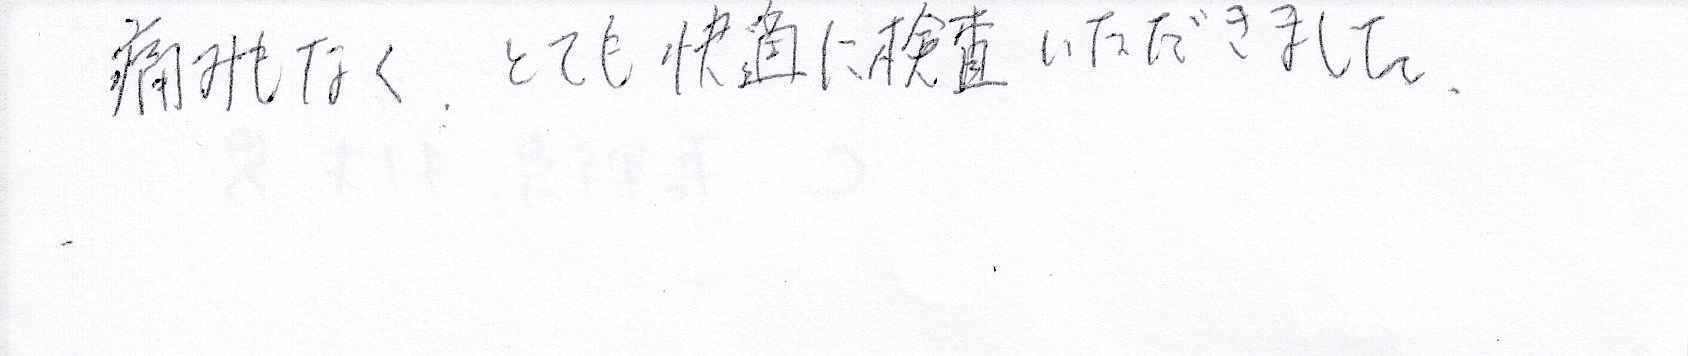 痛みもなく、とても快適に検査いただきました。